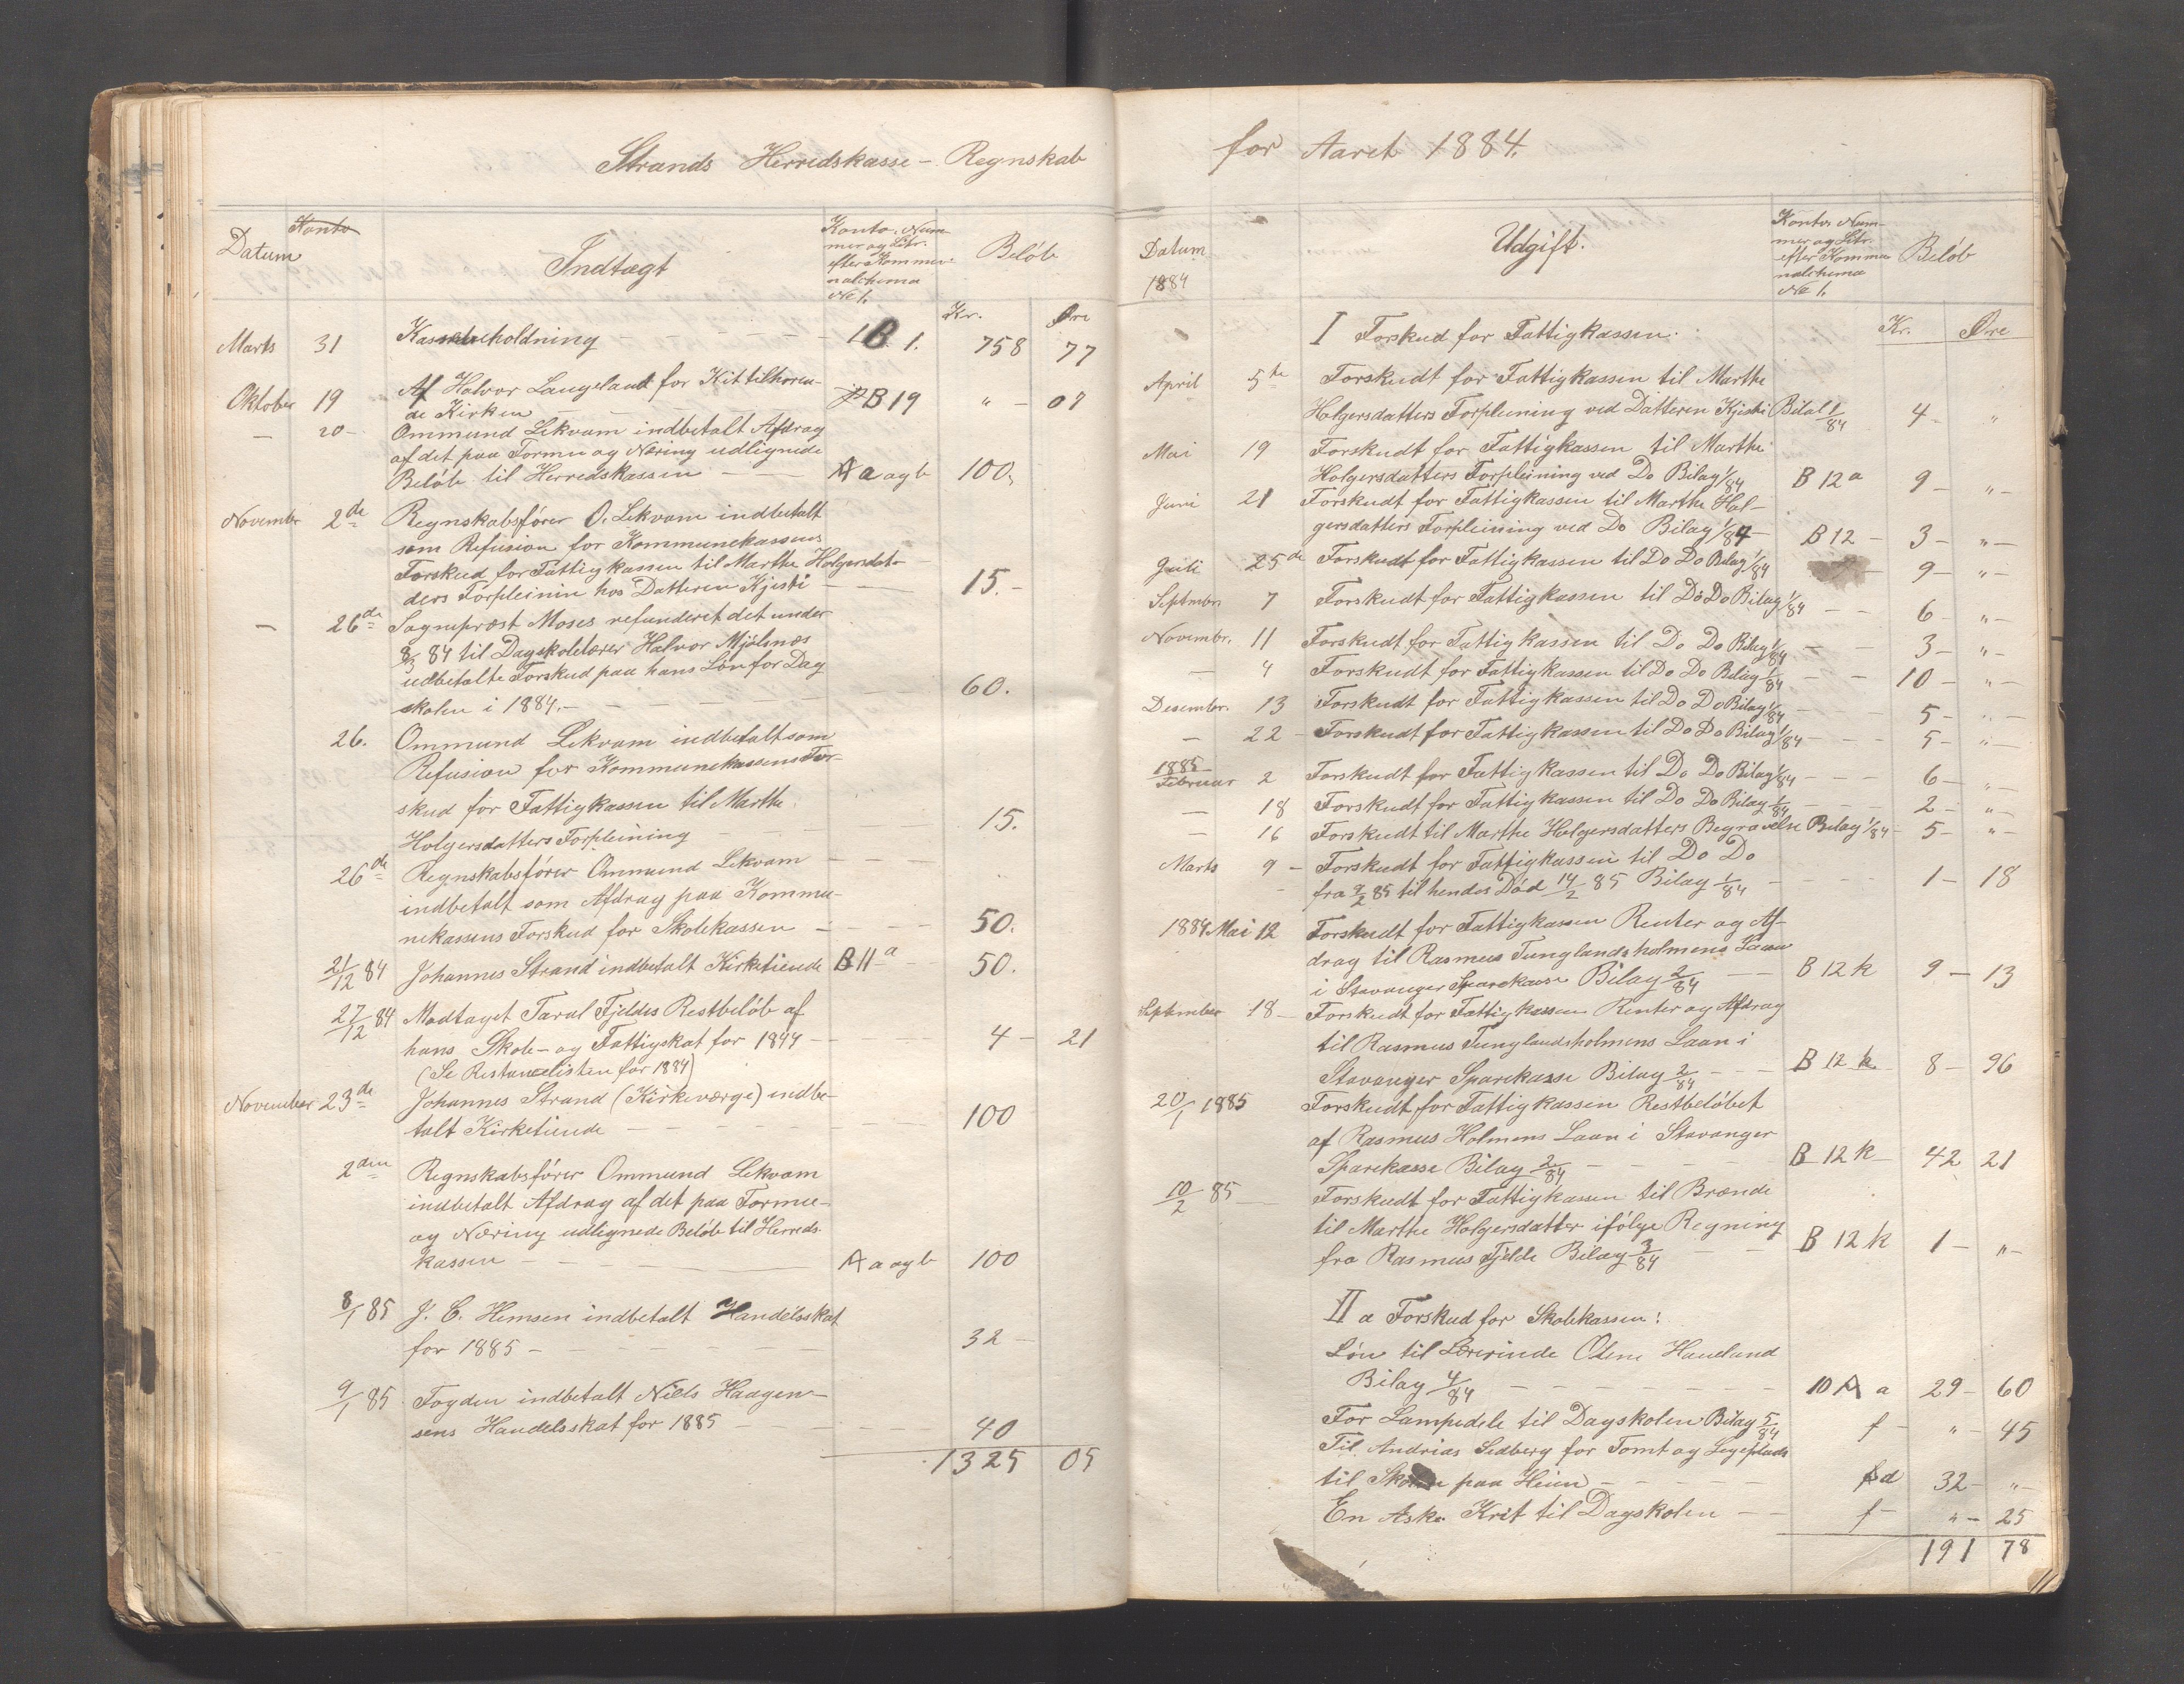 Strands Herredskasse - Regnskab
Datum Konto Indtægt Konto, Num-
mer og Litr.
efter Kommu-
nalchema
No 1. Beløb
Kr. Øre
Marts 31 Kassebeholdning - - - - 1 B 1. 758 77
Oktober 19 Af Halvor Langeland for Kit tilhøren-
de Kirken B 19 " - 07
- 20 - Ommund Lekvam indbetalt Afdrag
af det paa Formu og Næring udlignede
Beløb til Herredskassen - A a og b 100.
Novembr 2de Regnskabsfører O. Lekvam indbetalt
som Refusion for Kommunekassens
Forskud for Fattigkassen til Marthe Holgersdat-
ders Forpleinin hos Datteren Kjisti - 15.-
- 26de Sognepræst Moses refunderet det under
8/3 84 til Dagskolelærer Halvor Mjølsnæs
udbetalte Forskud paa hans Løn for Dag
skolen i 1884. - - - - - 60.
26. Ommund Lekvam indbetalt som
Refusion for Kommunekassens For-
skud for Fattigkassen til Marthe
Holgersdatters Forpleining - - - 15.
26de Regnskabsfører Ommund Lekvam - - -
indbetalt som Afdrag paa Kommu-
nekassens Forskud for Skolekassen - - - 50.
21/12 84 Johannes Strand indbetalt Kirketiende B 11 a - 50.
27/12 84 Modtaget Taral Fjeldes Restbeløb af
hans Skole- og Fattigskat for 1844 - - 4 - 21
(Se Restancelisten for 1884)
November 23de Johannes Strand (Kirkeværge) indbe-
talt Kirketiende - - - - - 100
2den Regnskabsfører Ommund Lekvam
indbetalt Afdrag af det paa Formue-
og Næring udlignede Beløb til Herreds-
kassen - - - - A a og b 100
8/1 85 J. C. Hemsen indbetalt Handelsskat
for 1885 - - - - - 32 -
9/1 85 Fogden indbetalt Niels Haagen-
sens Handelsskat for 1885 - - - 40
1325 05
for Aaret 1884.
Datum
1884 Udgift. Konto, Num-
mer og Litr.
efter Kommu
nalchema
No 1. Beløb
Kr. Øre
I Forskud for Fattigkassen.
April 5te Forskudt for Fattigkassen til Marthe
Holgersdatters Forpleining ved Datteren Kjisti Bilal 1/84 4 - "
Mai 19 Forskudt for Fattigkassen til Marthe
Holgersdatters Forpleining ved Do Bilag 1/84 B 12 a 9 - " -
Juni 21 Forskudt for Fattigkassen til Marthe Hol-
gersdatters Forpleining ved Do Bilag 1/84 - B 12 - 3 - " -
Juli 25de Forskudt for Fattigkassen til Do Do Bilag 1/84 - 9 - " -
Septmbr. 7 Forskudt for Fattigkassen til Do Do Bilag 1/84 - - 6 - " -
Novembr. 11 Forskudt for Fattigkassen til Do Do Bilag 1/84 - - 3 - " -
- 4 Forskudt for Fattigkassen til Do Do Bilag 1/84 - - 10 - " -
Desembr. 13 Forskudt for Fattigkassen til Do Do Bilag 1/84 - - 5 - " -
- 22 - Forskudt for Fattigkassen til Do Do Bilag 1/84 - - - 5 - " -
1885
Februar 2 Forskudt for Fattigkassen til Do Do Bilag 1/84 - - - 6 - " -
- 18 Forskudt for Fattigkassen til Do Do Bilag 1/84 - - - 2 - " -
- 16 Forskudt til Marthe Holgersdatters Begravelse Bilag 1/84 - 5 - " -
Marts 9 - Forskudt for Fattigkassen til Do Do
fra 9/2 85 til hendes Død 14/2 85 Bilag 1/84 - - - 1 - 18
1884 Mai 12 Forskudt for Fattigkassen Renter og Af-
drag til Rasmus Tunglandsholmens Laan
i Stavanger Sparekasse Bilag 2/84 - - B 12 k 9 - 13
September 18 - Forskudt for Fattigkassen Renter og Afdrag
til Rasmus Tunglandsholmens Laan i
Stavanger Sparekasse Bilag 2/84 - - - B 12 k 8 - 96
20/1 1885 Forskudt for Fattigkassen Restbeløbet
af Rasmus Holmens Laan i Stavanger
Sparekasse Bilag 2/84 - - - - B 12 k - 42 21
10/2 85 - Forskudt for Fattigkassen til Brænde
til Marthe Holgersdatter ifølge Regning
fra Rasmus Fjelde Bilag 3/84 - - B 12 k 1 - " -
II a Forskud for Skolekassen:
Løn til Lærerinde Olene Haueland
Bilag 4/84 - - - - - - 10 A a 29 - 60
For Lampedele til Dagskolen Bilag 5/84 f - " - 45
Til Andrias Sedberg for Tomt og Legeplads
til Skolen paa Heien - - - - d 32 - " -
En Aske Krit til Dagskolen - - f - " - 25
191 78